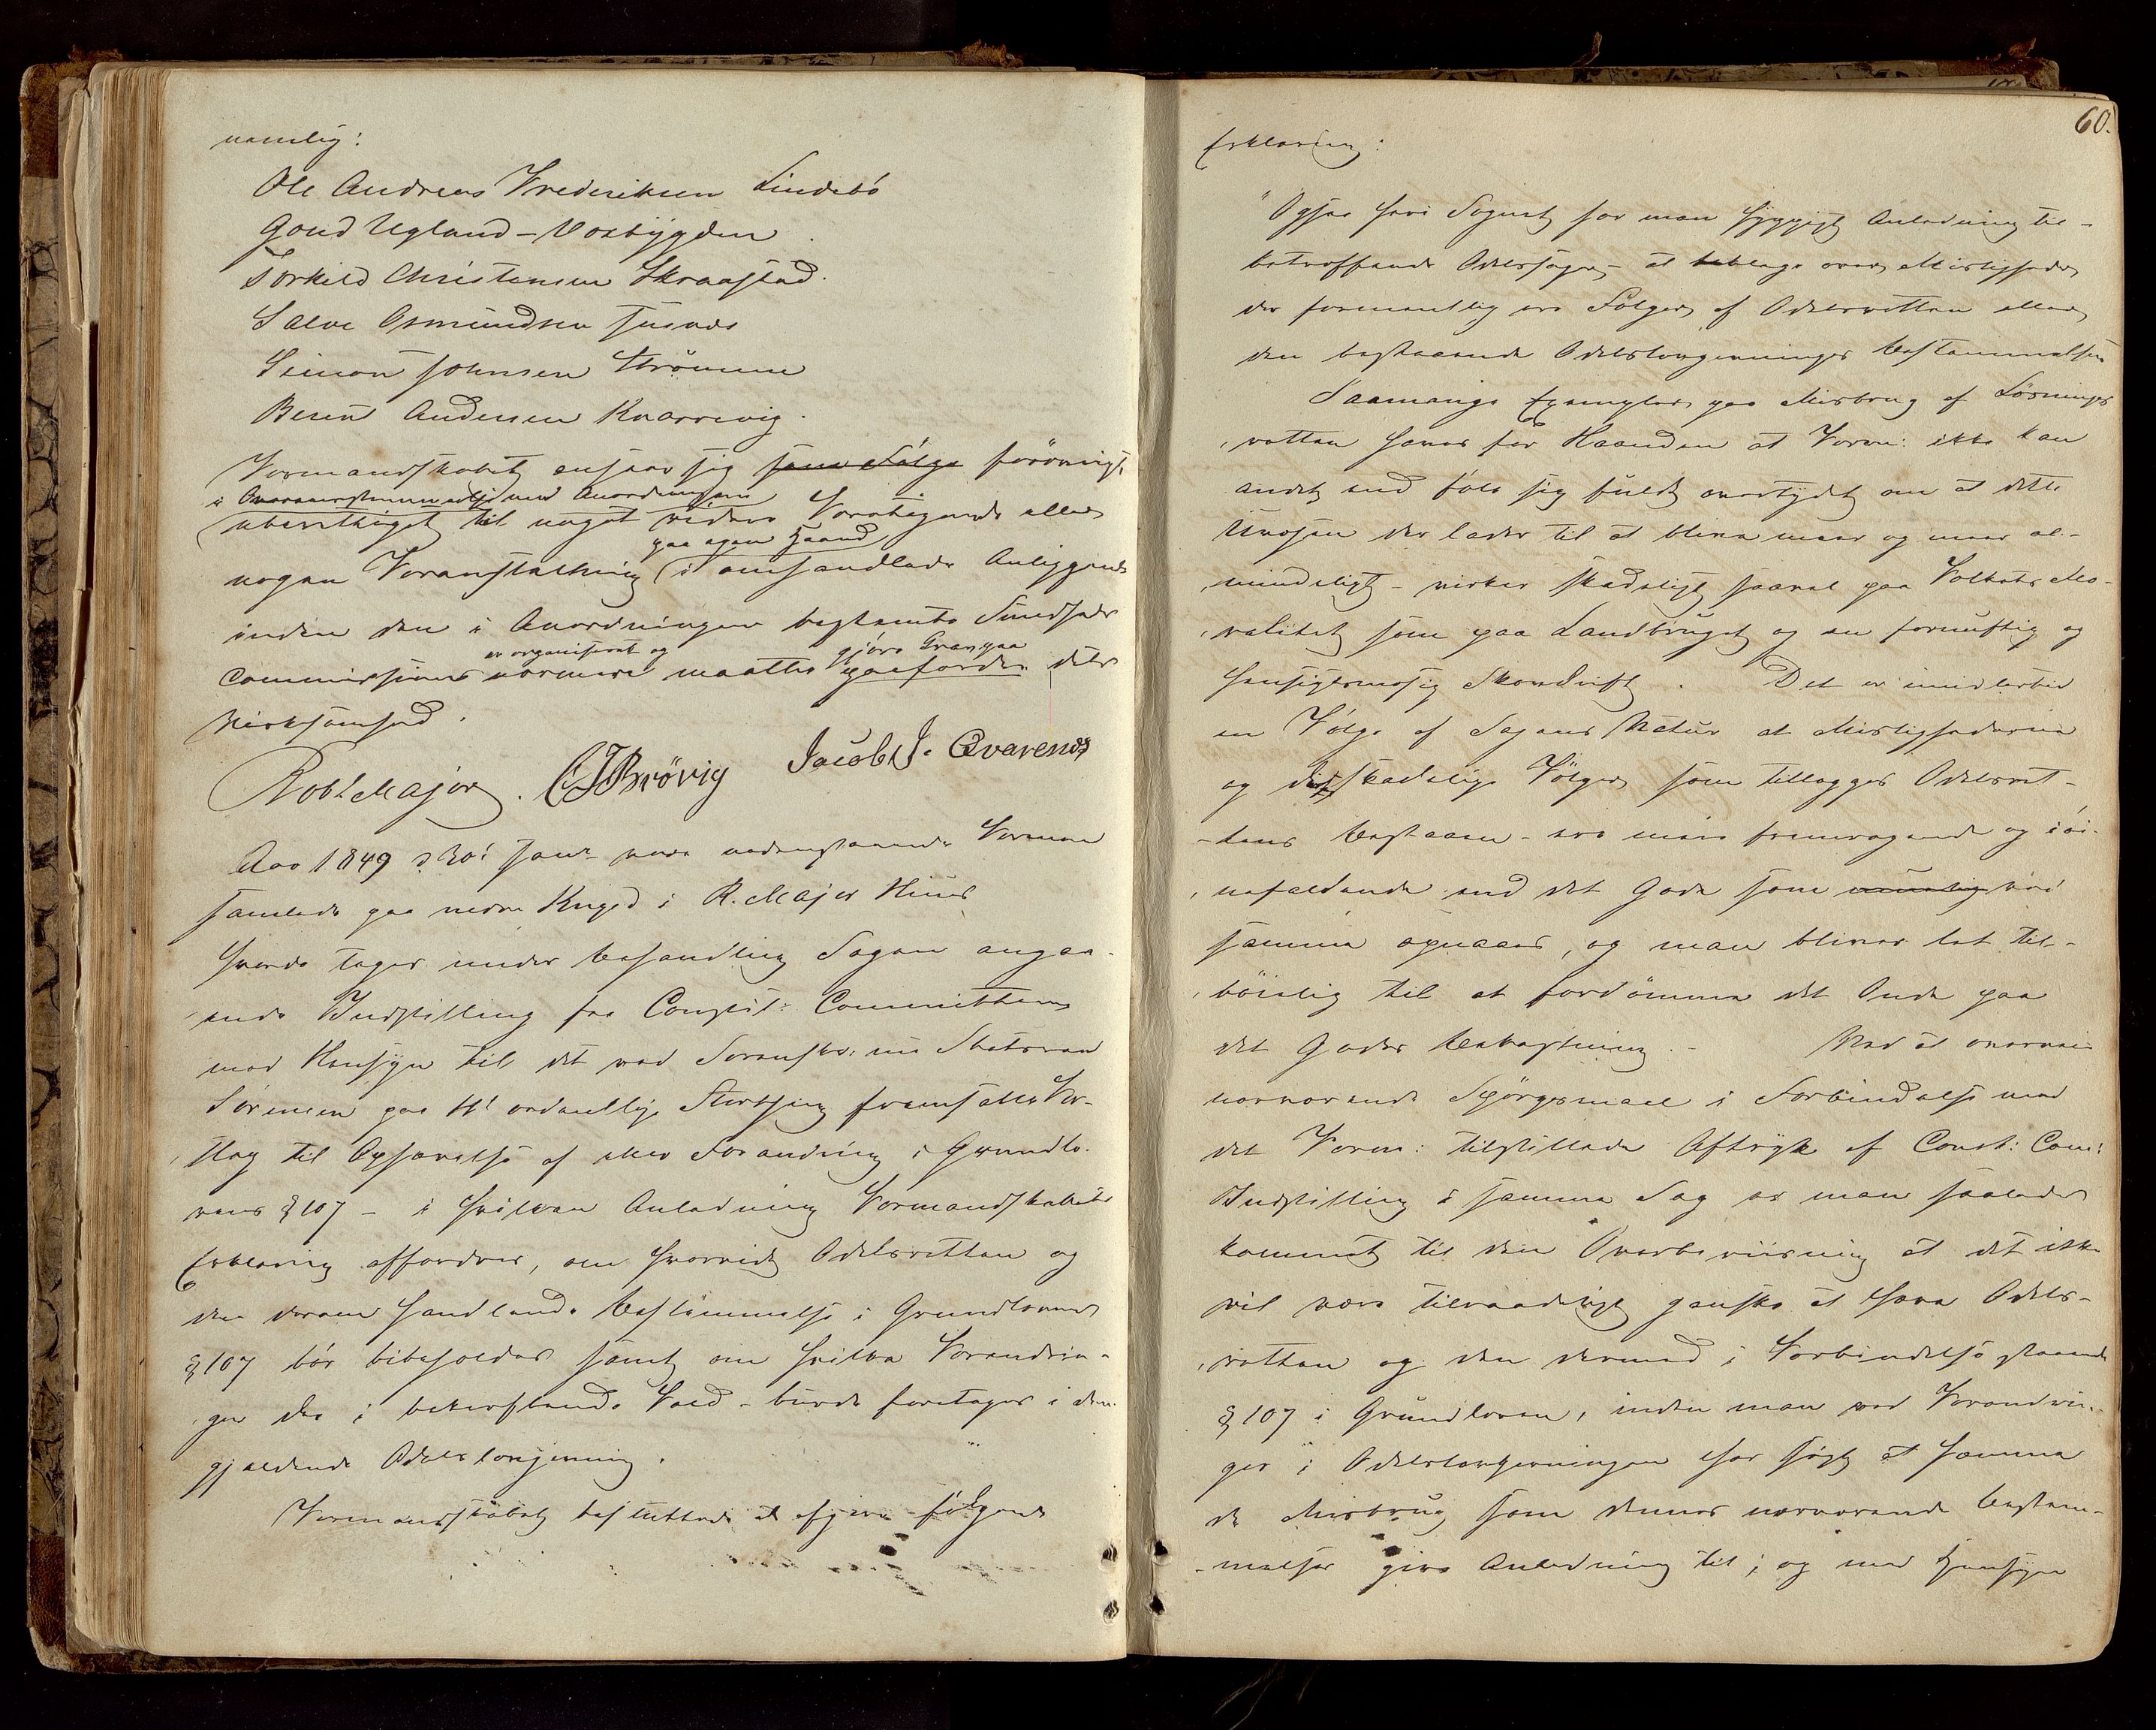 nemlig:
Ole Andreas Frederiksen Lindebö
Goud Ugland – Vosbygden
Torkild Christensen Skraastad.
Salve Osmundsen Tusnes
Simon Johnsen Strömme
Berent Andersen Knarrevig.
Formandskabet anseer sig som Følge forövrigt
i Overeensstemmelse med Anordningen
uberettiget til noget videre Foretagende eller
paa egen Haand
nogen Foranstaltning i omhandlede Anliggende
inden den i Anordningen bestemte Sundheds
er organiseret og gjöre Krav paa
Commission nærmere maatte paafordre dets
Virksomhed.
Robt Major. CJBrövig Jacob J. Qvarenes
Aar 1849 d 30' Janr vare nedenstaaende Formæn
samlede paa nedre Kuged i R. Majors Huus
hvorda toges under Behandling Sagen angaa-
ende Indstilling fra Constit: Committeen
med Hensyn til det ved Sorenskr: nu Statsraad
Sörensen paa 11' ordentlige Storthing fremsatte For-
slag til Ophævelse af eller Forandring i Grundlo-
vens § 107 – i hvilken Anledning Formandskabets
Erklæring affordres, om hvorvidt Odelsretten og
den derom handlende Bestemmelse i Grundlovens
§ 107 bör bibeholdes samt om hvilke Forandrin-
ger der i bekræftende Fald – burde foretages i den
gjældende Odelslovgivning.
Formandskabet besluttede at afgive fölgende
60.
Erklæring:
"Ogsaa her i Sognet har man hyppigt Anledning til –
betræffende Odelssager – at beklage over Misligheder
der formentlig ere Fölger af Odelsretten eller
den bestaaende Odelslovgivnings Bestemmelser
Saamange Exempler paa Misbrug af Lösnings-
retten haves for Haanden at Form: ikke kan
andet end föle sig fuldt overtydet om at dette
Uvæsen der lader til at blive meer og meer al-
mindeligt – virker skadeligt saavel paa Folkets Mo-
ralitet som paa Landbruget og en fornuftig og
hensigtsmæsig Skovdrift. Det er imidlertid
en Fölge af Sagens Natur at Mislighederne
og de skadelige Fölger som tillægges Odelsret-
tens Bestaaen – ere mere fremragende og iöi-
nefaldende end det Gode som ved
samme opnaaes, og man bliver let til-
böielig til at fordömme det Onde paa
det Godes Bekostning. – Ved at overveie
nærværende Spörgsmaal i Forbindelse med
det Form: tilstillede Aftryk af Const: Com:
Indstilling i samme Sag er man saaledes
kommet til den Overbeviisning at det ikke
vil være tilraadeligt ganske at hæve Odels-
retten og den dermed i Forbindelse staaende
§ 107 i Grundloven, inden man ved Forandrin-
ger i Odelslovgivningen har sögt at hæmme
de Misbrug som dennes nærværende Bestem-
melser give Anledning til; og med Hensyn